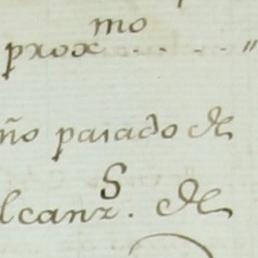 proxmo . . . . . "
ño pasado de
lcanzS. de